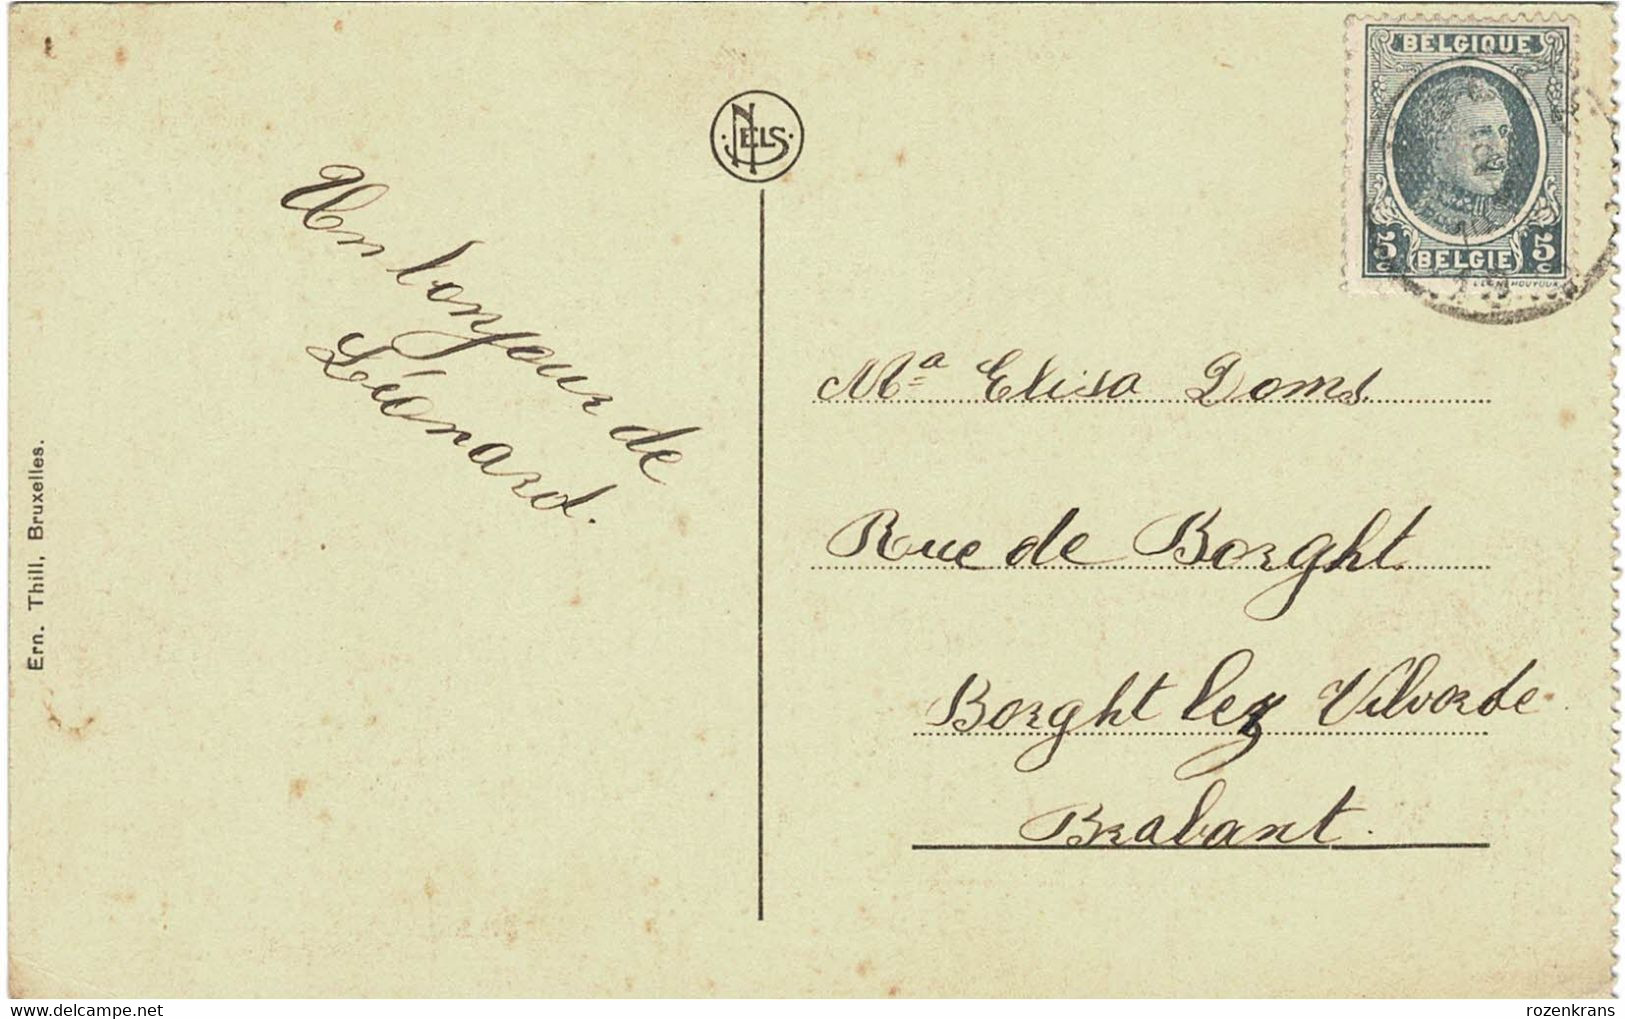 BELGIQUE
5c 5c
BELGIE
NELS
Un bonjour de
Léonard.
Mª Elisa Doms
Rue de Borght
Borght lez Vilvorde
Brabant.
Ern. Thill, Bruxelles.
www.delcampe.net
rozenkrans